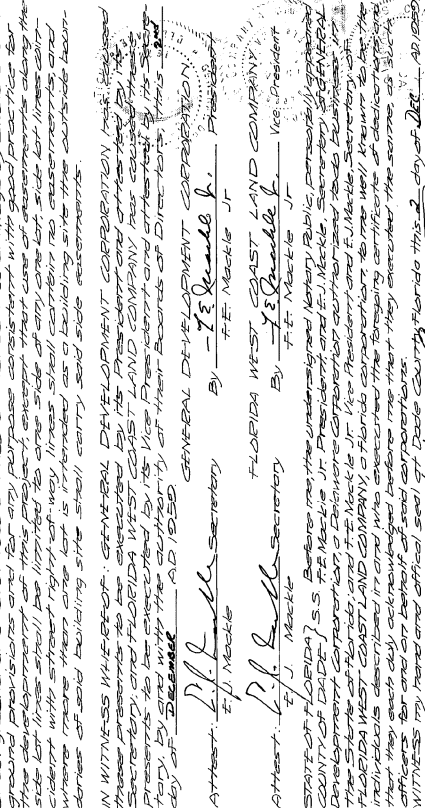 and devisions thereof for any purpose consistent with good practice for
the development of this project, except that use of easements along the
side lot lines shall be limited to one side of any one lot, side lot lines coin-
cident with street right of way lines shall contain no easements, and
where more than one lot is intended as a building site the outside boun-
daries of said building site shall carry said side easements.
IN WITNESS WHEREOF: GENERAL DEVELOPMENT CORPORATION has caused
these presents to be executed by its President and attested by its
Secretary, and FLORIDA WEST COAST LAND COMPANY has caused these
presents to be executed by its Vice President and attested by its Secre-
tary, by and with the authority of their Boards of Directors this 2nd
day of DECEMBER A.D. 1959.
GENERAL DEVELOPMENT CORPORATION
Attest: E. J. Mackle Secretary By F. E. Mackle Jr. President
E. J. Mackle F. E. Mackle Jr
FLORIDA WEST COAST LAND COMPANY
Attest: E. J. Mackle Secretary By F. E. Mackle Jr. Vice President
E. J. Mackle F. E. Mackle Jr
STATE OF FLORIDA } S.S. Before me, the undersigned Notary Public, personally appeared
COUNTY OF DADE } F. E. Mackle Jr. President, and E. J. Mackle, Secretary of GENERAL
Development Corporation, a Delaware Corporation authorized to do business in
the State of Florida and F. E. Mackle Jr. Vice President and E. J. Mackle Secretary of
FLORIDA WEST COAST LAND COMPANY, a Florida corporation, to me well known to be the
individuals described in and who executed the foregoing certificate of dedication and
that they each duly acknowledged before me that they executed the same, as such
officers for and on behalf of said corporations.
WITNESS my hand and official seal at Dade County, Florida this 2 day of DEC A.D. 1959